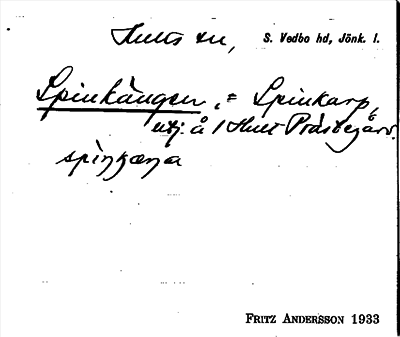 Hults sn, S. Vedbo hd, Jönk. l.
Spinkängen, = Spinkarp,
utj. å 1 Hult Prästegård.
spiŋkæŋa
FRITZ ANDERSSON 1933